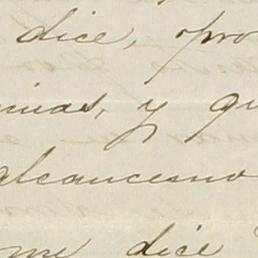 dice, pro
nias, y qu
alcancesno
me dice